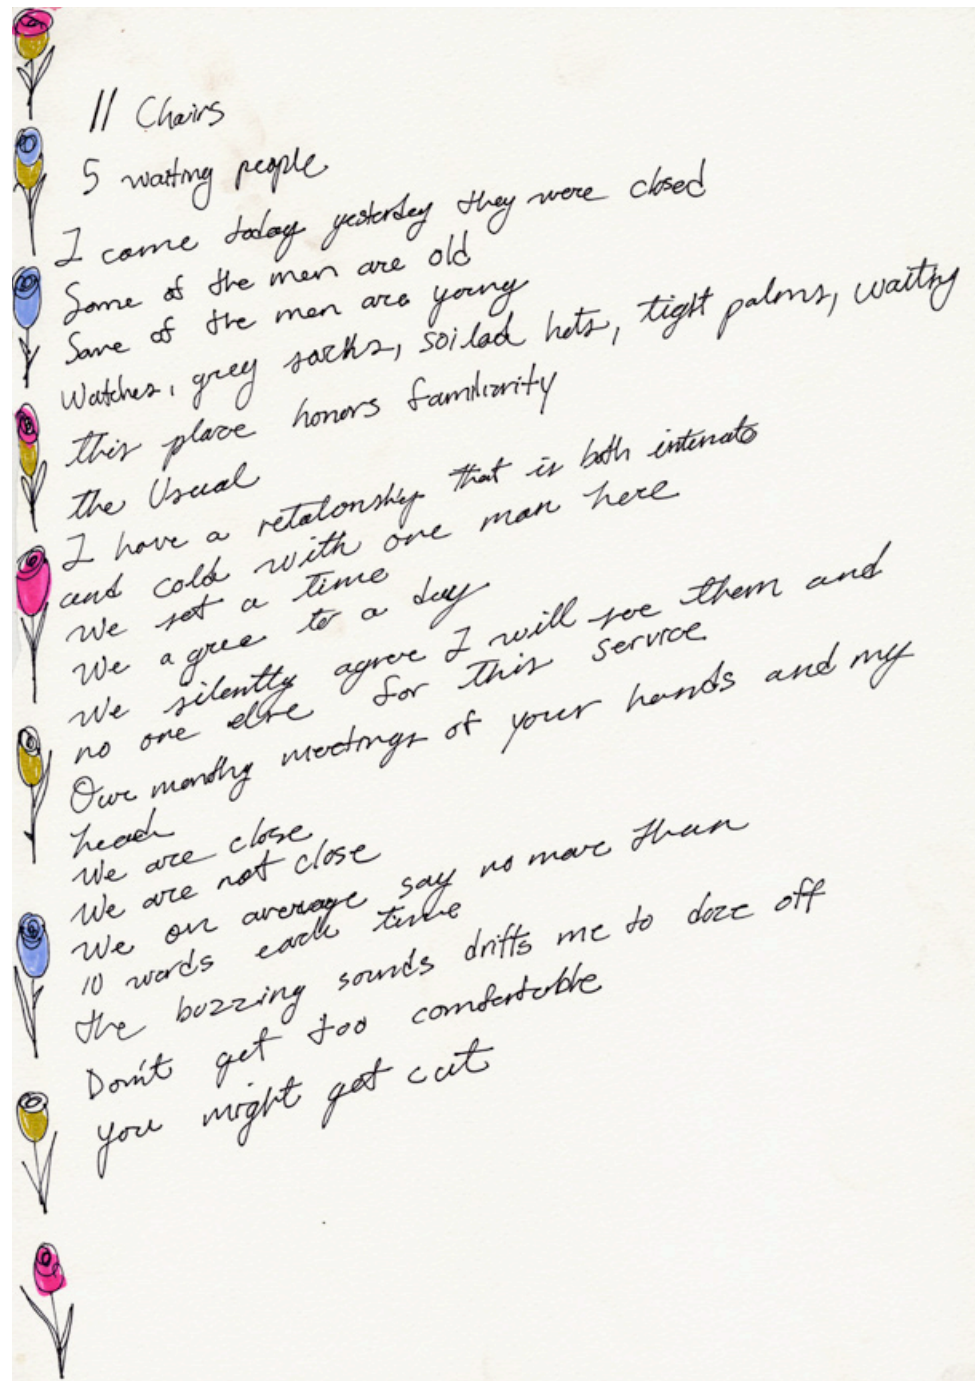 11 Chairs
5 waiting people
I came today yesterday they were closed
Some of the men are old
Some of the men are young
Watches, grey socks, soiled hats, tight palms, waiting
this place honors familiarity
the Usual
I have a relationship that is both intimate
and cold with one man here
We set a time
We agree to a day
We silently agree I will see them and
no one else for this service
Our monthly meetings of your hands and my
head
We are close
We are not close
We on average say no more than
10 words each time
the buzzing sounds drifts me to doze off
Don't get too comfortable
you might get cut